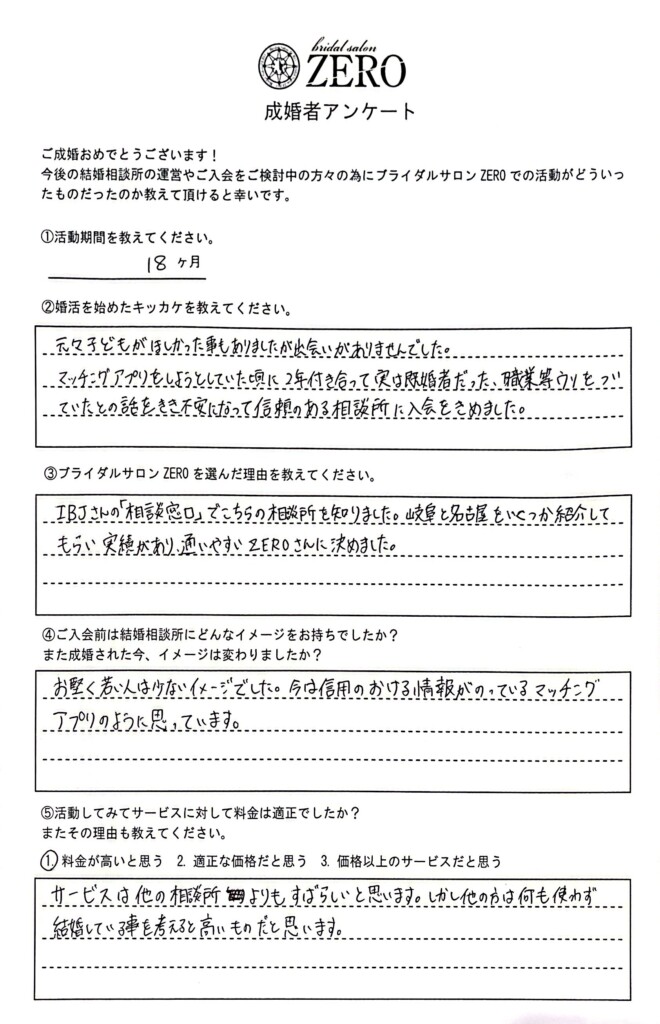 bridal salon
ZERO
成婚者アンケート
ご成婚おめでとうございます！
今後の結婚相談所の運営やご入会をご検討中の方々の為にブライダルサロン ZERO での活動がどういっ
たものだったのか教えて頂けると幸いです。
①活動期間を教えてください。
18 ヶ月
②婚活を始めたキッカケを教えてください。
元々子どもがほしかった事もありましたが出会いがありませんでした。
マッチングアプリをしようとしていた頃に2年付き合って実は既婚者だった、職業等ウソをつい
ていたとの話をきき不安になって信頼のある相談所に入会をきめました。
③ブライダルサロン ZERO を選んだ理由を教えてください。
IBJさんの「相談窓口」でこちらの相談所を知りました。岐阜と名古屋をいくつか紹介して
もらい実績があり、通いやすいZEROさんに決めました。
④ご入会前は結婚相談所にどんなイメージをお持ちでしたか？
また成婚された今、イメージは変わりましたか？
お堅く若い人は少ないイメージでした。今は信用のおける情報がのっているマッチング
アプリのように思っています。
⑤活動してみてサービスに対して料金は適正でしたか？
またその理由も教えてください。
1. 料金が高いと思う 2. 適正な価格だと思う 3. 価格以上のサービスだと思う
サービスは他の相談所よりもすばらしいと思います。しかし他の方は何も使わず
結婚している事を考えると高いものだと思います。